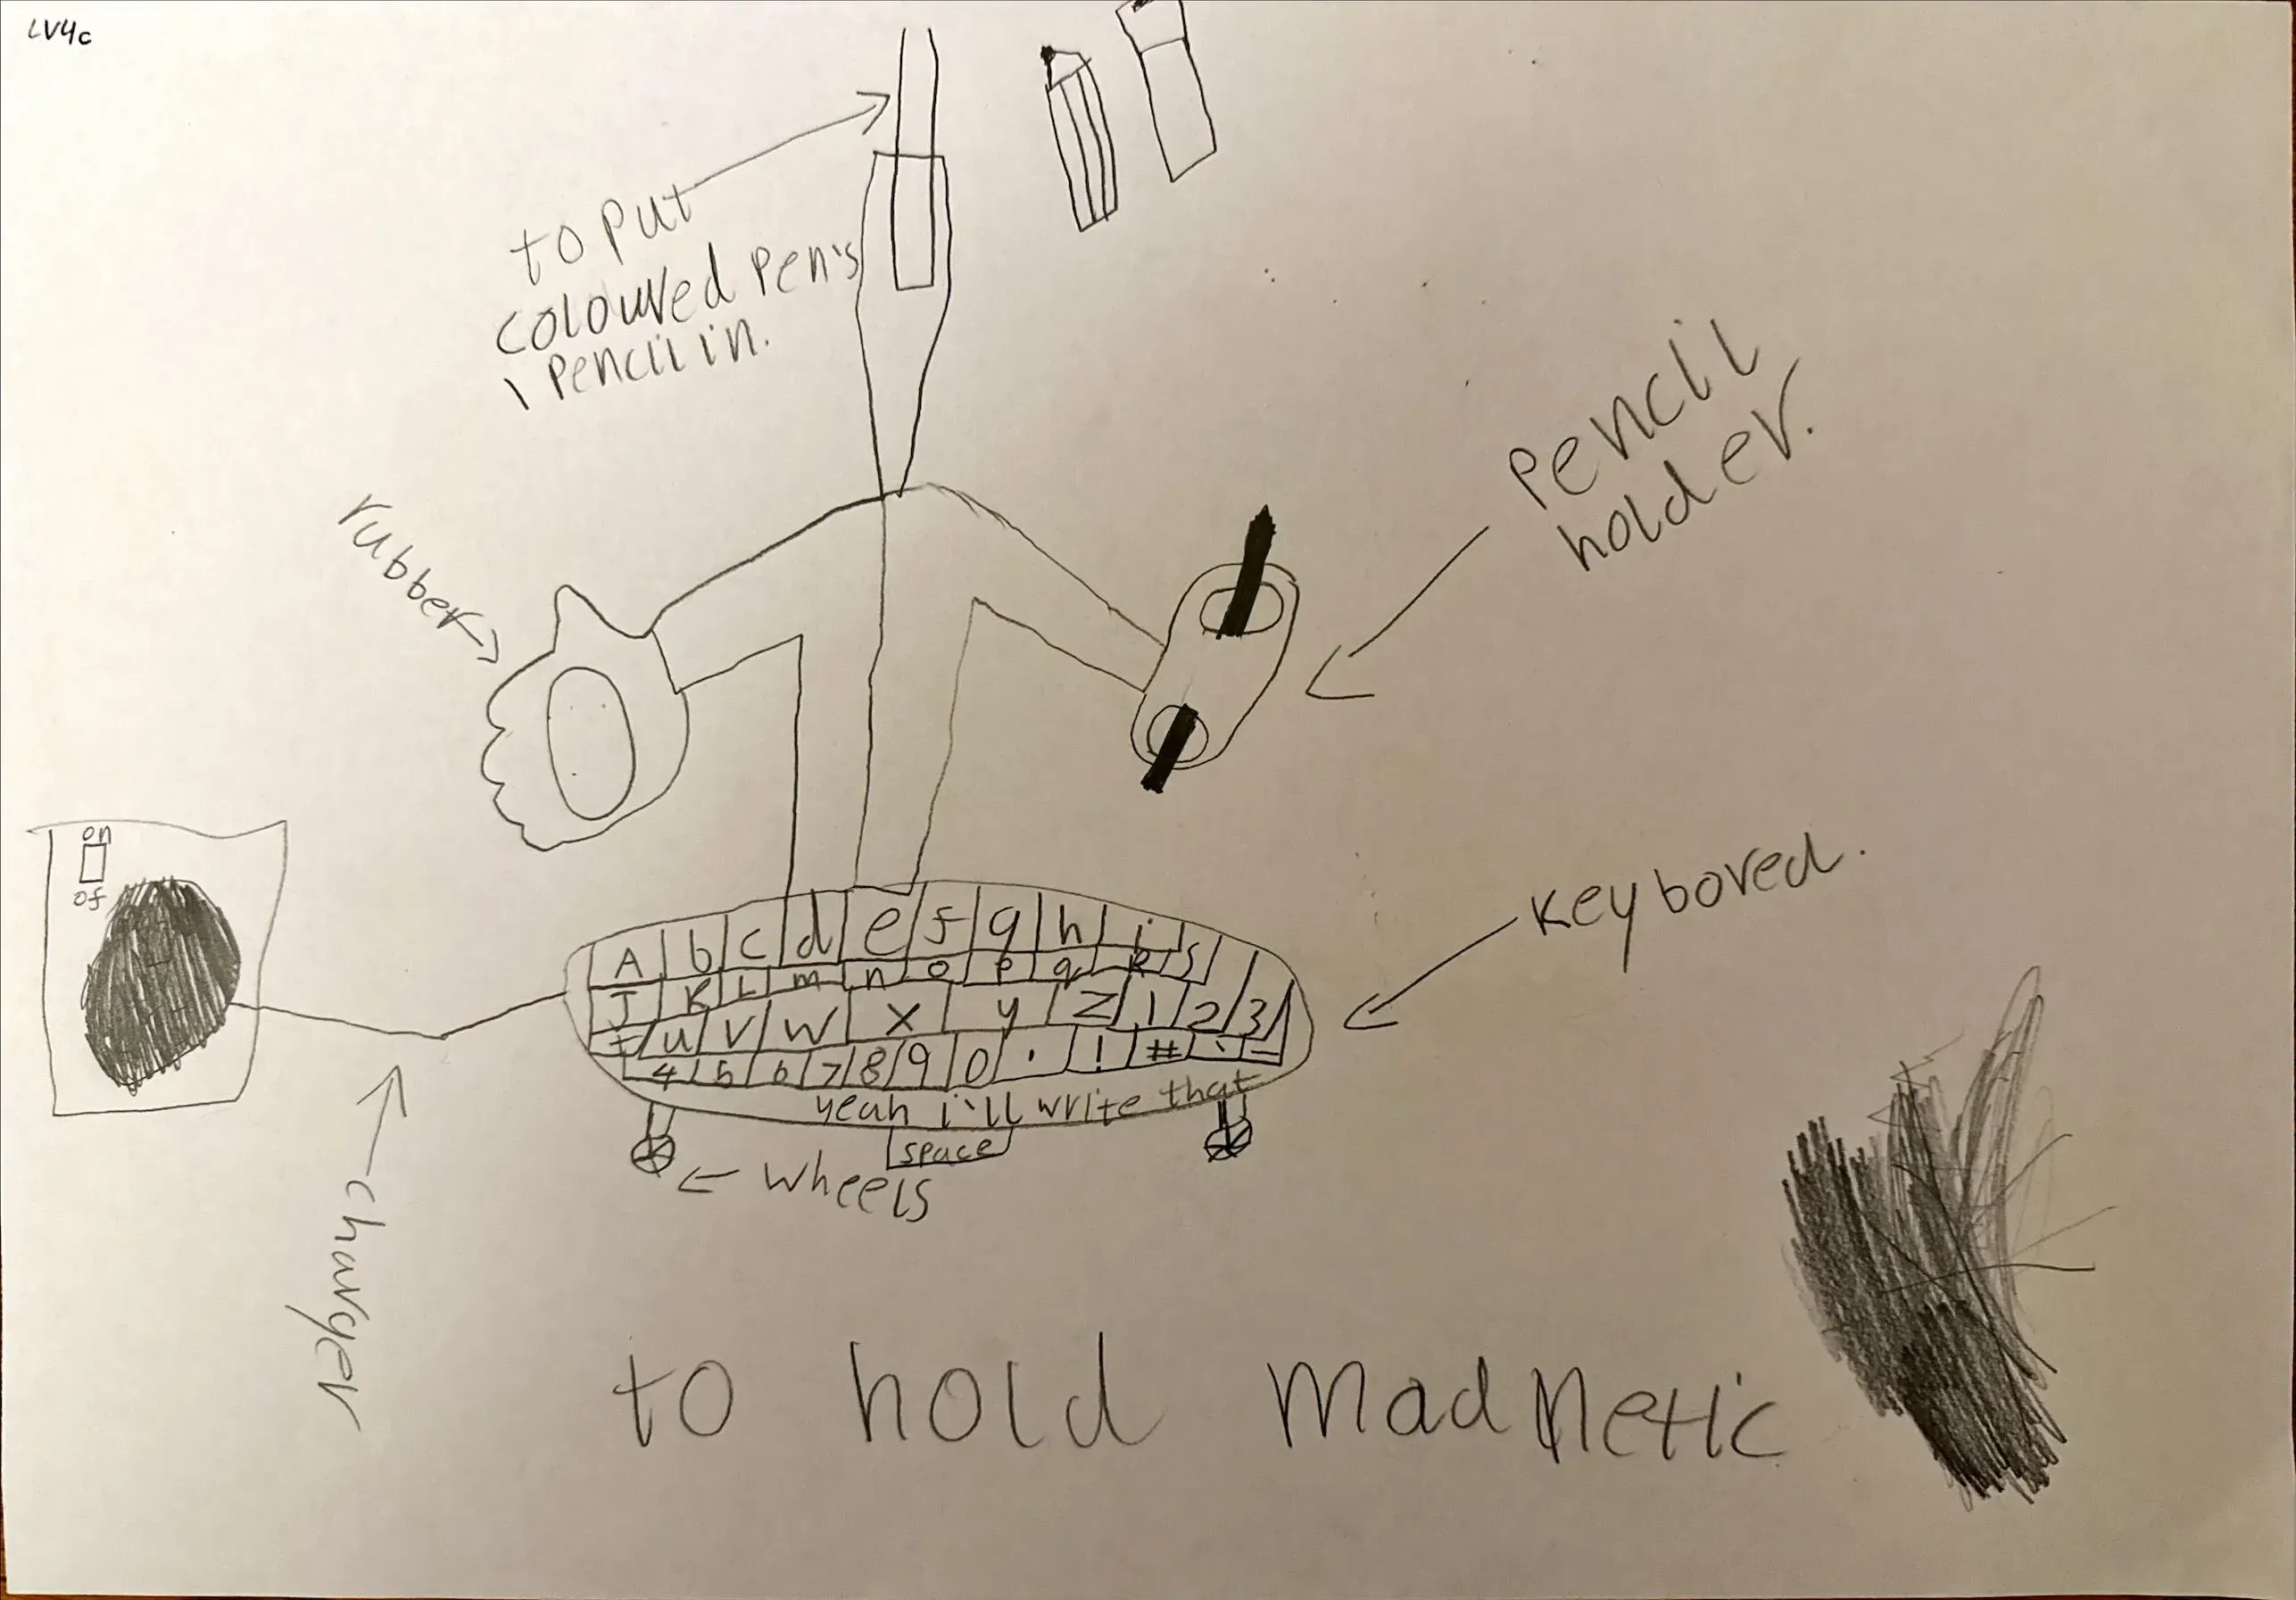 LV4c
to put
coloured pen's
\ pencil in.
pencil
holder.
rubber
on
of
keybored.
A b c d e f g h i
J K L m n o p q R S
t u v w x y z 1 2 3
4 5 6 7 8 9 0 . ! # ` -
yeah i'll write that
space
wheels
charger
to hold madnetic